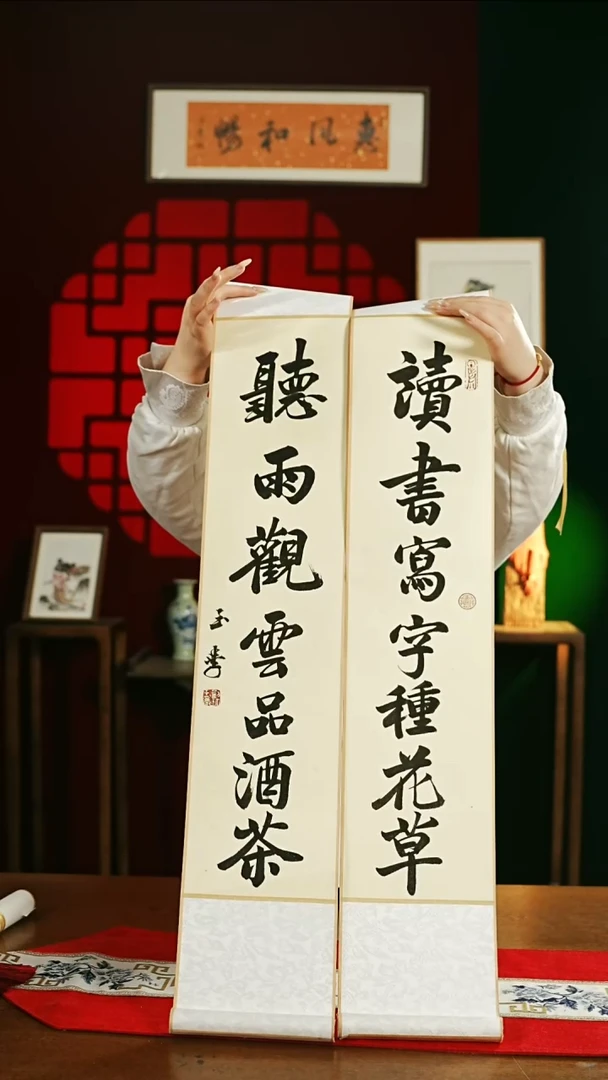 惠風和暢
讀書寫字種花草
聽雨觀雲品酒茶